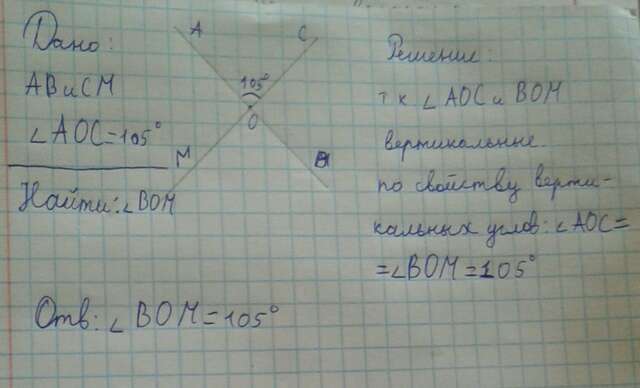 Дано:
АВ и СМ
∠AOC=105°
Найти: ∠BOM
A
C
105°
O
M
B
Решение:
т к ∠AOC и BOM
вертикальные.
по свойству верти-
кальных углов: ∠AOC=
=∠BOM=105°
Отв: ∠BOM=105°